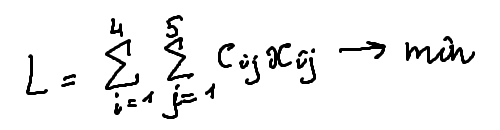 L = \sum_{i=1}^{4} \sum_{j=1}^{5} c_{ij} x_{ij} → min